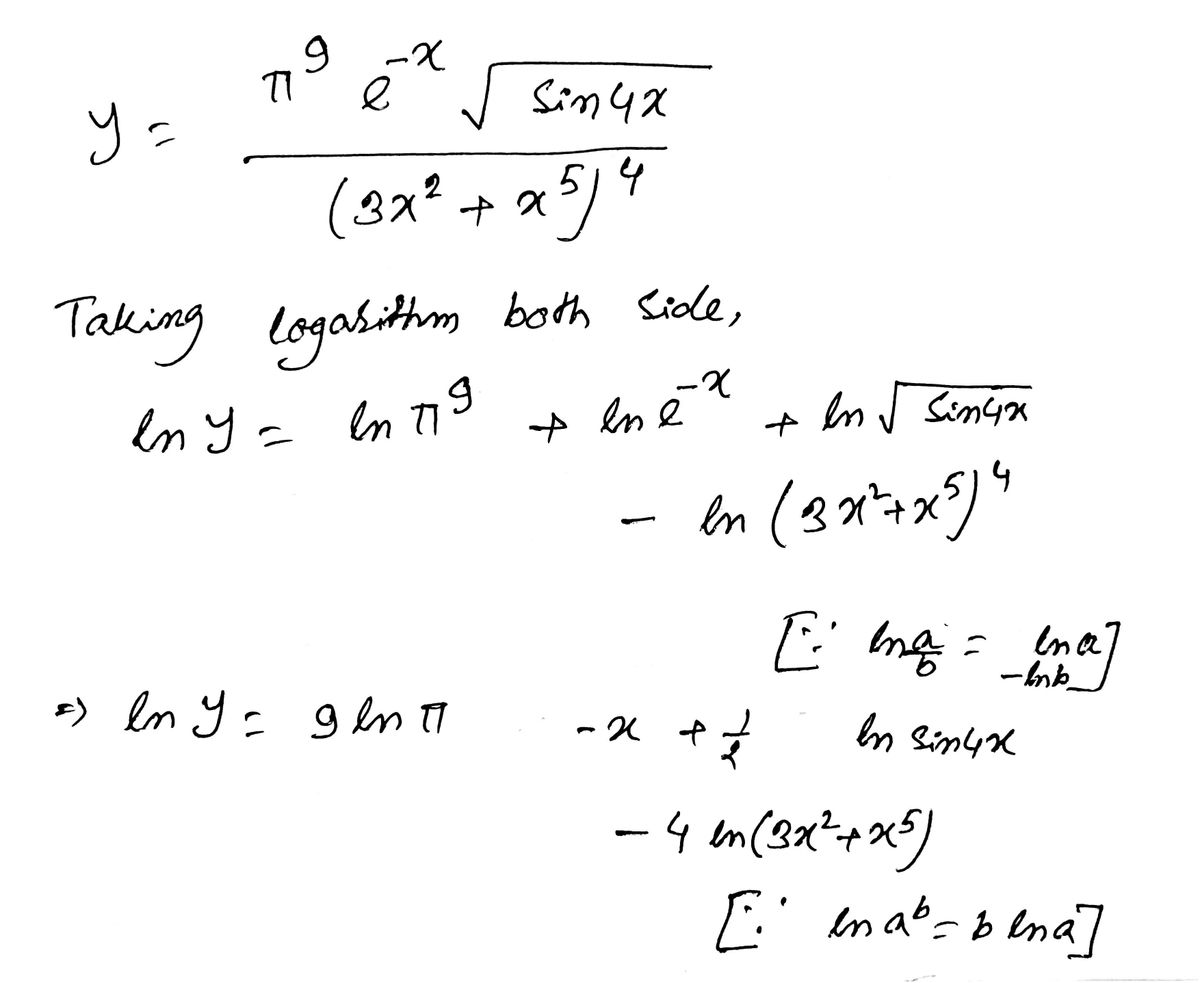 y = π^9 e^{-x} √(sin4x) / (3x^2 + x^5)^4
Taking logarithm both side,
ln y = ln π^9 + ln e^{-x} + ln √(sin4x)
- ln (3x^2+x^5)^4
[∵ ln a/b = ln a - ln b]
⇒ ln y = 9 ln π - x + 1/2 ln sin4x
- 4 ln(3x^2+x^5)
[∵ ln a^b = b ln a]